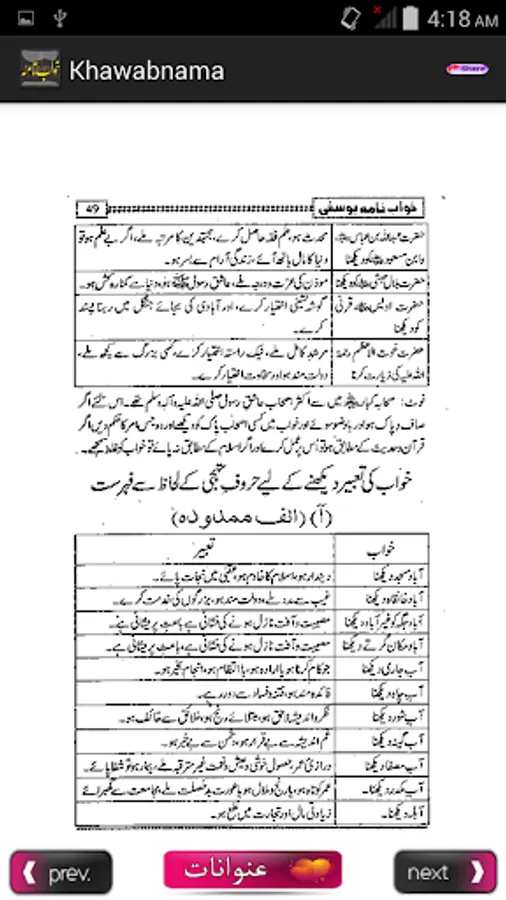 4:18 AM
Khawabnama
Share
49 خواب نامہ یوسفی
حضرت عبداللہ بن عباسؓ محدث ہو، علم فقہ حاصل کرے، مجتہدین کا مرتبہ ملے، اگر بے علم ہو تو
وابن مسعودؓ کو دیکھنا دنیا کا مال ہاتھ آئے، زندگی آرام سے بسر ہو۔
حضرت بلال حبشیؓ کو دیکھنا مؤذن کی عزت و درجہ ملے، عاشق رسول ﷺ ہو، دنیا سے کنارہ کش ہو۔
حضرت اویس قرنی گوشہ نشینی اختیار کرے، اور آبادی کی بجائے جنگل میں رہنا پسند
کو دیکھنا کرے۔
حضرت غوث الاعظم رحمۃ مرشد کامل ملے، نیک راستہ اختیار کرے، کسی بزرگ سے کچھ ملے،
اللہ علیہ کی زیارت کرنا دولت مند ہو اور سخاوت اختیار کرے۔
نوٹ: صحابہ کبارؓ میں سے اکثر اصحاب عاشق رسول صلی اللہ علیہ وآلہ وسلم تھے۔ اس لئے اگر
صاف و پاک ہو اور باوضو سوئے اور خواب میں کسی اصحاب پاک کو دیکھے اور وہ جس امر کا حکم دیں اگر
قرآن و حدیث کے مطابق ہو تو اُس پر عمل کرے اور اگر اسلام کے مطابق نہ پائے تو خواب کو غلط سمجھے۔
خواب کی تعبیر دیکھنے کے لیے حروف تہجی کے لحاظ سے فہرست
(آ) (الف ممدودہ)
خواب تعبیر
آباد مسجد دیکھنا دیندار ہو، اسلام کا خادم ہو، عقبیٰ میں نجات پائے۔
آباد خانقاہ دیکھنا غیب سے مدد ملے، دولت مند ہو، بزرگوں کی خدمت کرے۔
آباد جگہ کو غیر آباد دیکھنا مصیبت و آفت نازل ہونے کی نشانی ہے باعث پریشانی ہے۔
آباد مکان گرتے دیکھنا مصیبت و آفت نازل ہونے کی نشانی ہے، باعث پریشانی ہے۔
آب جاری دیکھنا جو کام کرنا ہو یا ارادہ ہو، با انتظام ہو، انجام بخیر ہو۔
آب چاہ دیکھنا فائدہ مند ہو، فتنہ و فساد سے دور رہے۔
آب شور دیکھنا فکر و اندیشہ لاحق ہو، مبتلائے رنج ہو، خلائق سے خائف ہو۔
آب گینہ دیکھنا غم اندیشہ سے بے قرار ہو، دشمن سے بے خبر ہو۔
آب مصفا دیکھنا درازی عمر، حصول خوشی و عیش و نعمت غیر مترقبہ ملے، بیمار ہو تو شفا پائے۔
آب مکدر دیکھنا۔ عمر کوتاہ ہو، یا رنج و ملال ہو یا عورت بد خصلت ملے، مجامعت سے گھبرائے
آبلہ دیکھنا۔ زیادتی مال اور تجارت میں نفع ہو۔
prev. عنوانات next